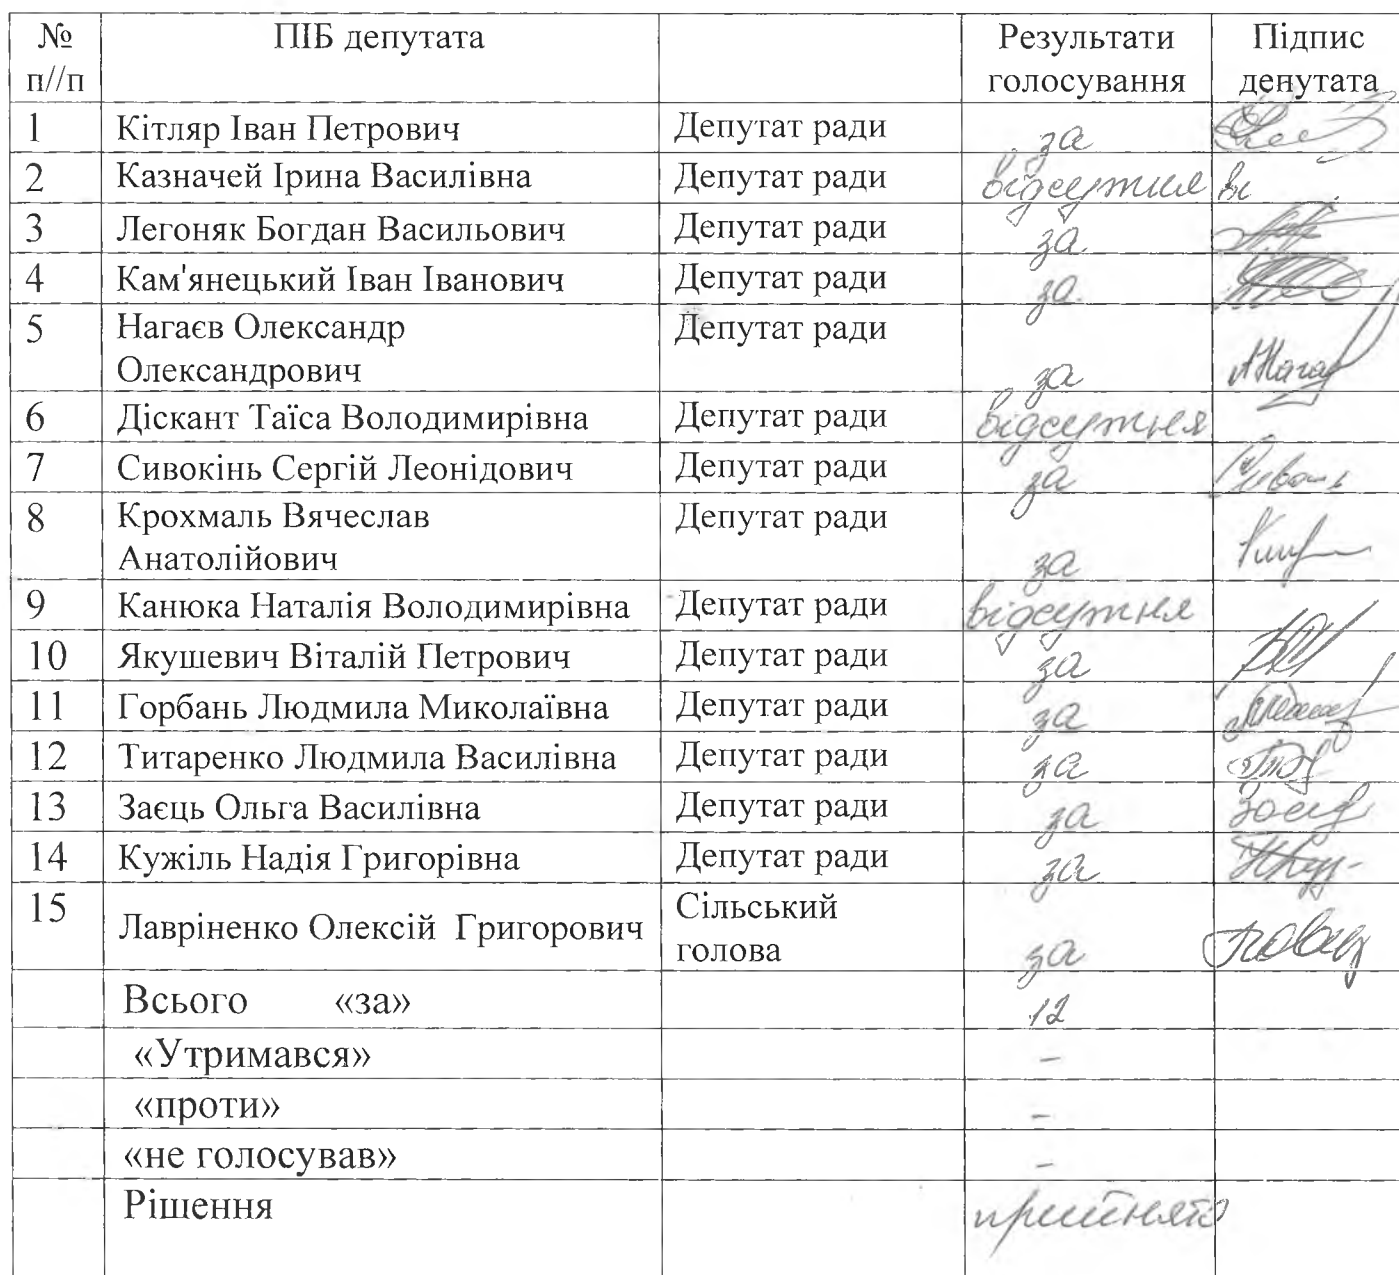 № ПІБ депутата Результати Підпис
п//п голосування депутата
1 Кітляр Іван Петрович Депутат ради за
2 Казначей Ірина Василівна Депутат ради відсутня ві
3 Легоняк Богдан Васильович Депутат ради за
4 Кам'янецький Іван Іванович Депутат ради за
5 Нагаєв Олександр Депутат ради
Олександрович за
6 Діскант Таїса Володимирівна Депутат ради відсутня
7 Сивокінь Сергій Леонідович Депутат ради за
8 Крохмаль Вячеслав Депутат ради
Анатолійович за
9 Канюка Наталія Володимирівна Депутат ради відсутня
10 Якушевич Віталій Петрович Депутат ради за
11 Горбань Людмила Миколаївна Депутат ради за
12 Титаренко Людмила Василівна Депутат ради за
13 Заєць Ольга Василівна Депутат ради за
14 Кужіль Надія Григорівна Депутат ради за
15 Лавріненко Олексій Григорович Сільський
голова за
Всього «за» 12
«Утримався» -
«проти» -
«не голосував» -
Рішення прийнято